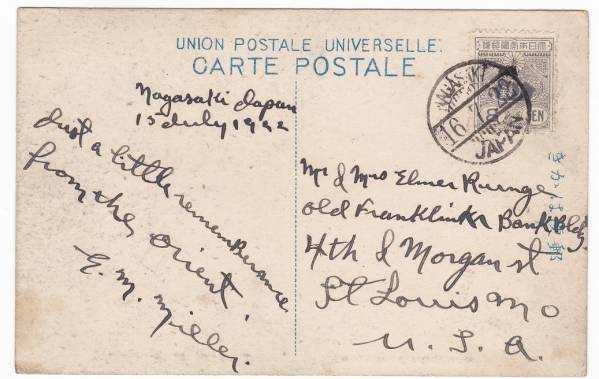 UNION POSTALE UNIVERSELLE.
CARTE POSTALE
大日本帝國郵便
NAGASAKI
16
JAPAN
Nagasaki Japan
15 July 1922
Just a little rememberance
from the orient.
G. M. Miller.
Mr & Mrs Elmer Runge
old Franklin Bank Bldg
4th & Morgan st
St Louis Mo
U. S. A.